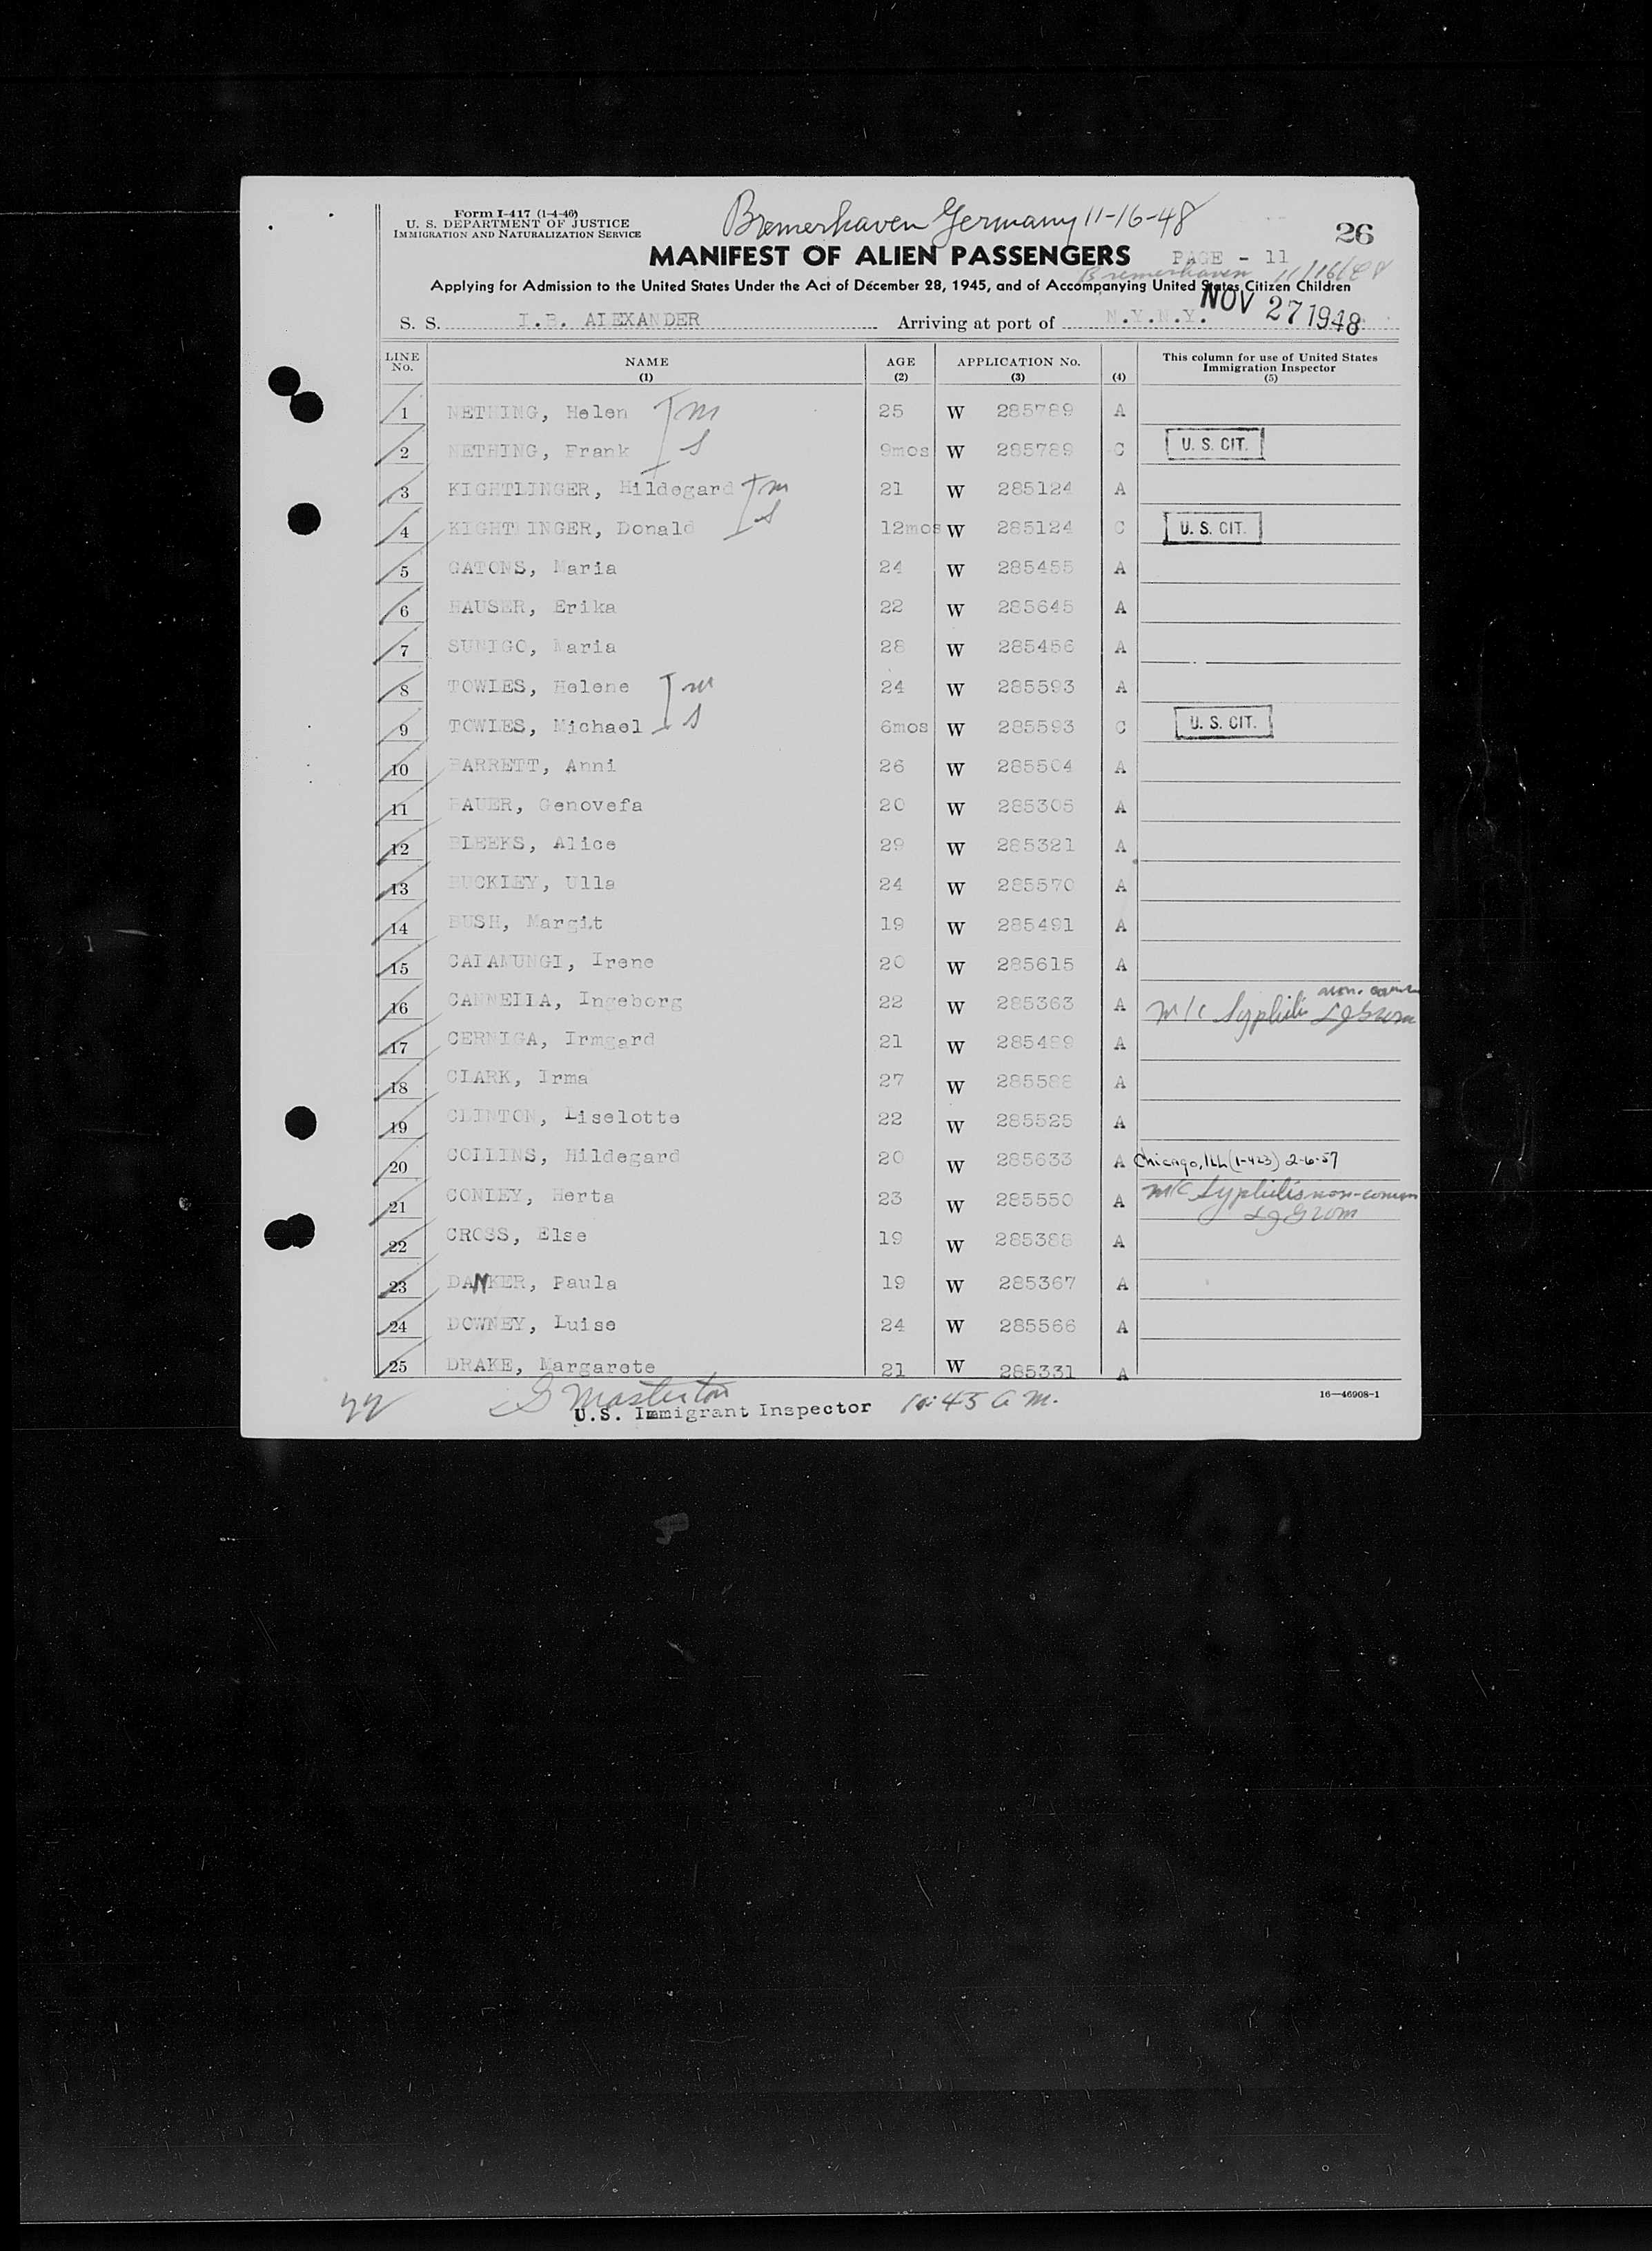 Form I-417 (1-4-46)
U. S. DEPARTMENT OF JUSTICE
IMMIGRATION AND NATURALIZATION SERVICE
Bremerhaven Germany 11-16-48
26
MANIFEST OF ALIEN PASSENGERS PAGE - 11
Bremerhaven 11/16/48
Applying for Admission to the United States Under the Act of December 28, 1945, and of Accompanying United States Citizen Children
NOV 27 1948
S. S. I.B. ALEXANDER Arriving at port of N.Y.N.Y.
LINE No. NAME (1) AGE (2) APPLICATION No. (3) (4) This column for use of United States Immigration Inspector (5)
1 NETHING, Helen m 25 W 285789 A
2 NETHING, Frank s 9mos W 285789 C U. S. CIT.
3 KIGHTLINGER, Hildegard m 21 W 285124 A
4 KIGHTLINGER, Donald s 12mos W 285124 C U. S. CIT.
5 GATONS, Maria 24 W 285455 A
6 HAUSER, Erika 22 W 285645 A
7 SUNIGO, Maria 28 W 285456 A
8 TOWLES, Helene m 24 W 285593 A
9 TOWLES, Michael s 6mos W 285593 C U. S. CIT.
10 BARRETT, Anni 26 W 285504 A
11 BAUER, Genovefa 20 W 285305 A
12 BLEEKS, Alice 29 W 285321 A
13 BUCKLEY, Ulla 24 W 285570 A
14 BUSH, Margit 19 W 285491 A
15 CALAMUNGI, Irene 20 W 285615 A
16 CANNELLA, Ingeborg 22 W 285363 A m/c Syphilis
17 CERNIGA, Irmgard 21 W 285489 A
18 CLARK, Irma 27 W 285588 A
19 CLINTON, Liselotte 22 W 285525 A
20 COLLINS, Hildegard 20 W 285633 A Chicago, Ill (1-423) 2-6-57
21 CONLEY, Herta 23 W 285550 A m/c Syphilis non-
22 CROSS, Else 19 W 285388 A
23 DANKER, Paula 19 W 285367 A
24 DOWNEY, Luise 24 W 285566 A
25 DRAKE, Margarete 21 W 285331 A
16—46908-1
S Masterton 10:45 a m.
U.S. Immigrant Inspector